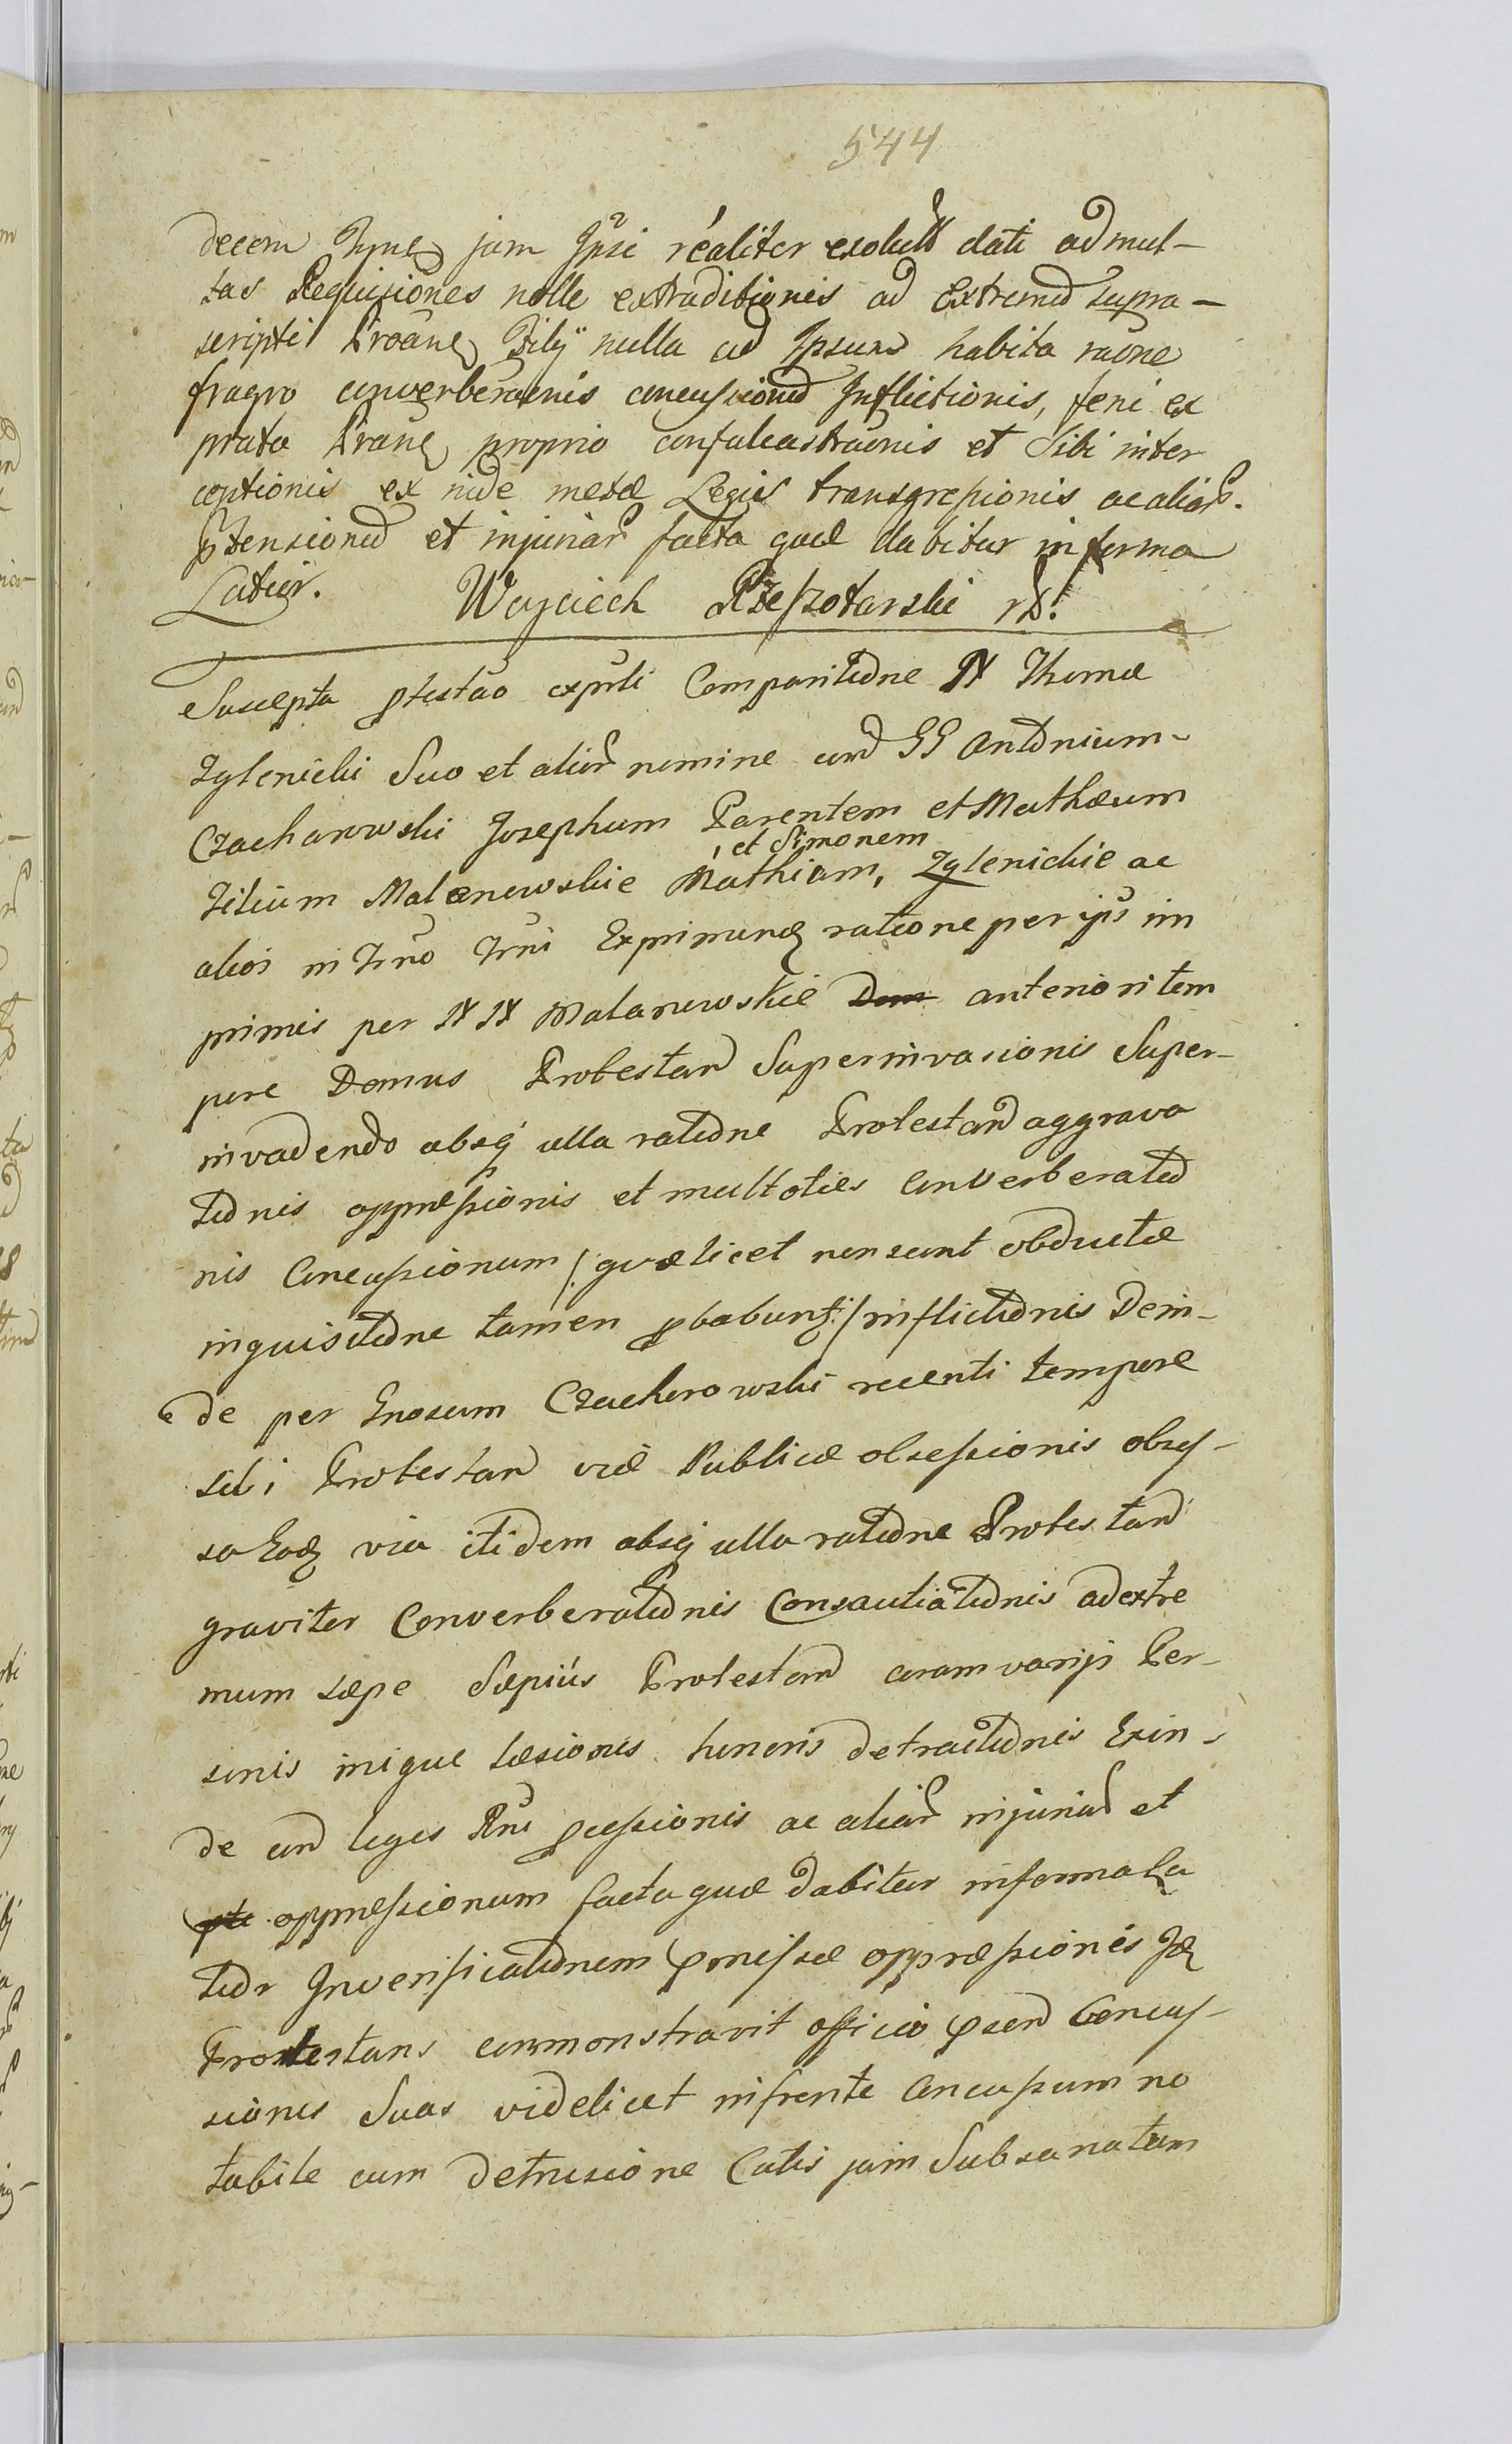 544
decem Tynf jam Ipsi réaliter exolutt dati ad mul-
tas Requisiones nolle extraditionis ad Extremū supra-
scripti Proāne Filÿ nulla ad Ipsum habita raōne
fragro converberaēnis concussionū Inflictionis, feni ex
prato Prane proprio confalcastraōnis et Sibi inter
ceptionis ex nide metæ Legis transgressionis ac aliar.
ptensionū et injuriar facta quæ dabitur in forma
Latiōr. Wojciech Rzeszotarski
Suscepta ptestāo exprti Comparitione N Thomæ
Zglenicki Suo et aliōr nomine cōn GG Antonium-
Czacharowski Josephum Parentem et Mathæum
, et Simonem
Filium Malanowskie Mathiam, Zglenickie ac
alios in Trno Trni Exprimend ratione per ips im
primis per NN Malanowskie Dom anterioritem
pore Domus Protestan Superinvasionis Super-
invadendo absq ulla ratione Protestan aggrava
tionis oppressionis et multoties Converberatio
nis Concussionum /: quæ licet non sunt obductæ
inquisitione tamen pbabunt :/ inflictionis Dein-
de per Gnosum Czacherowski recenti tempore
sibi Protestan viæ Publicæ obsessionis obses-
sa Ead via itidem absq ulla ratione Protestan
graviter Converberationis Consautiationis ad extre
mum sæpe Sæpiùs Protestan coram varijs Per-
sonis inique læsiones honoris detractionis Exin-
de con leges Rni pcessionis ac aliar injuriar et
pte oppressionum facta quæ dabitur in forma La
tior Inverificationem pmissæ oppræssionis Id
Protestans commonstravit officio psen Concus-
siones Suas videlicet in fronte Concussum no
tabile cum detrusione Cutis jam Subsanatum